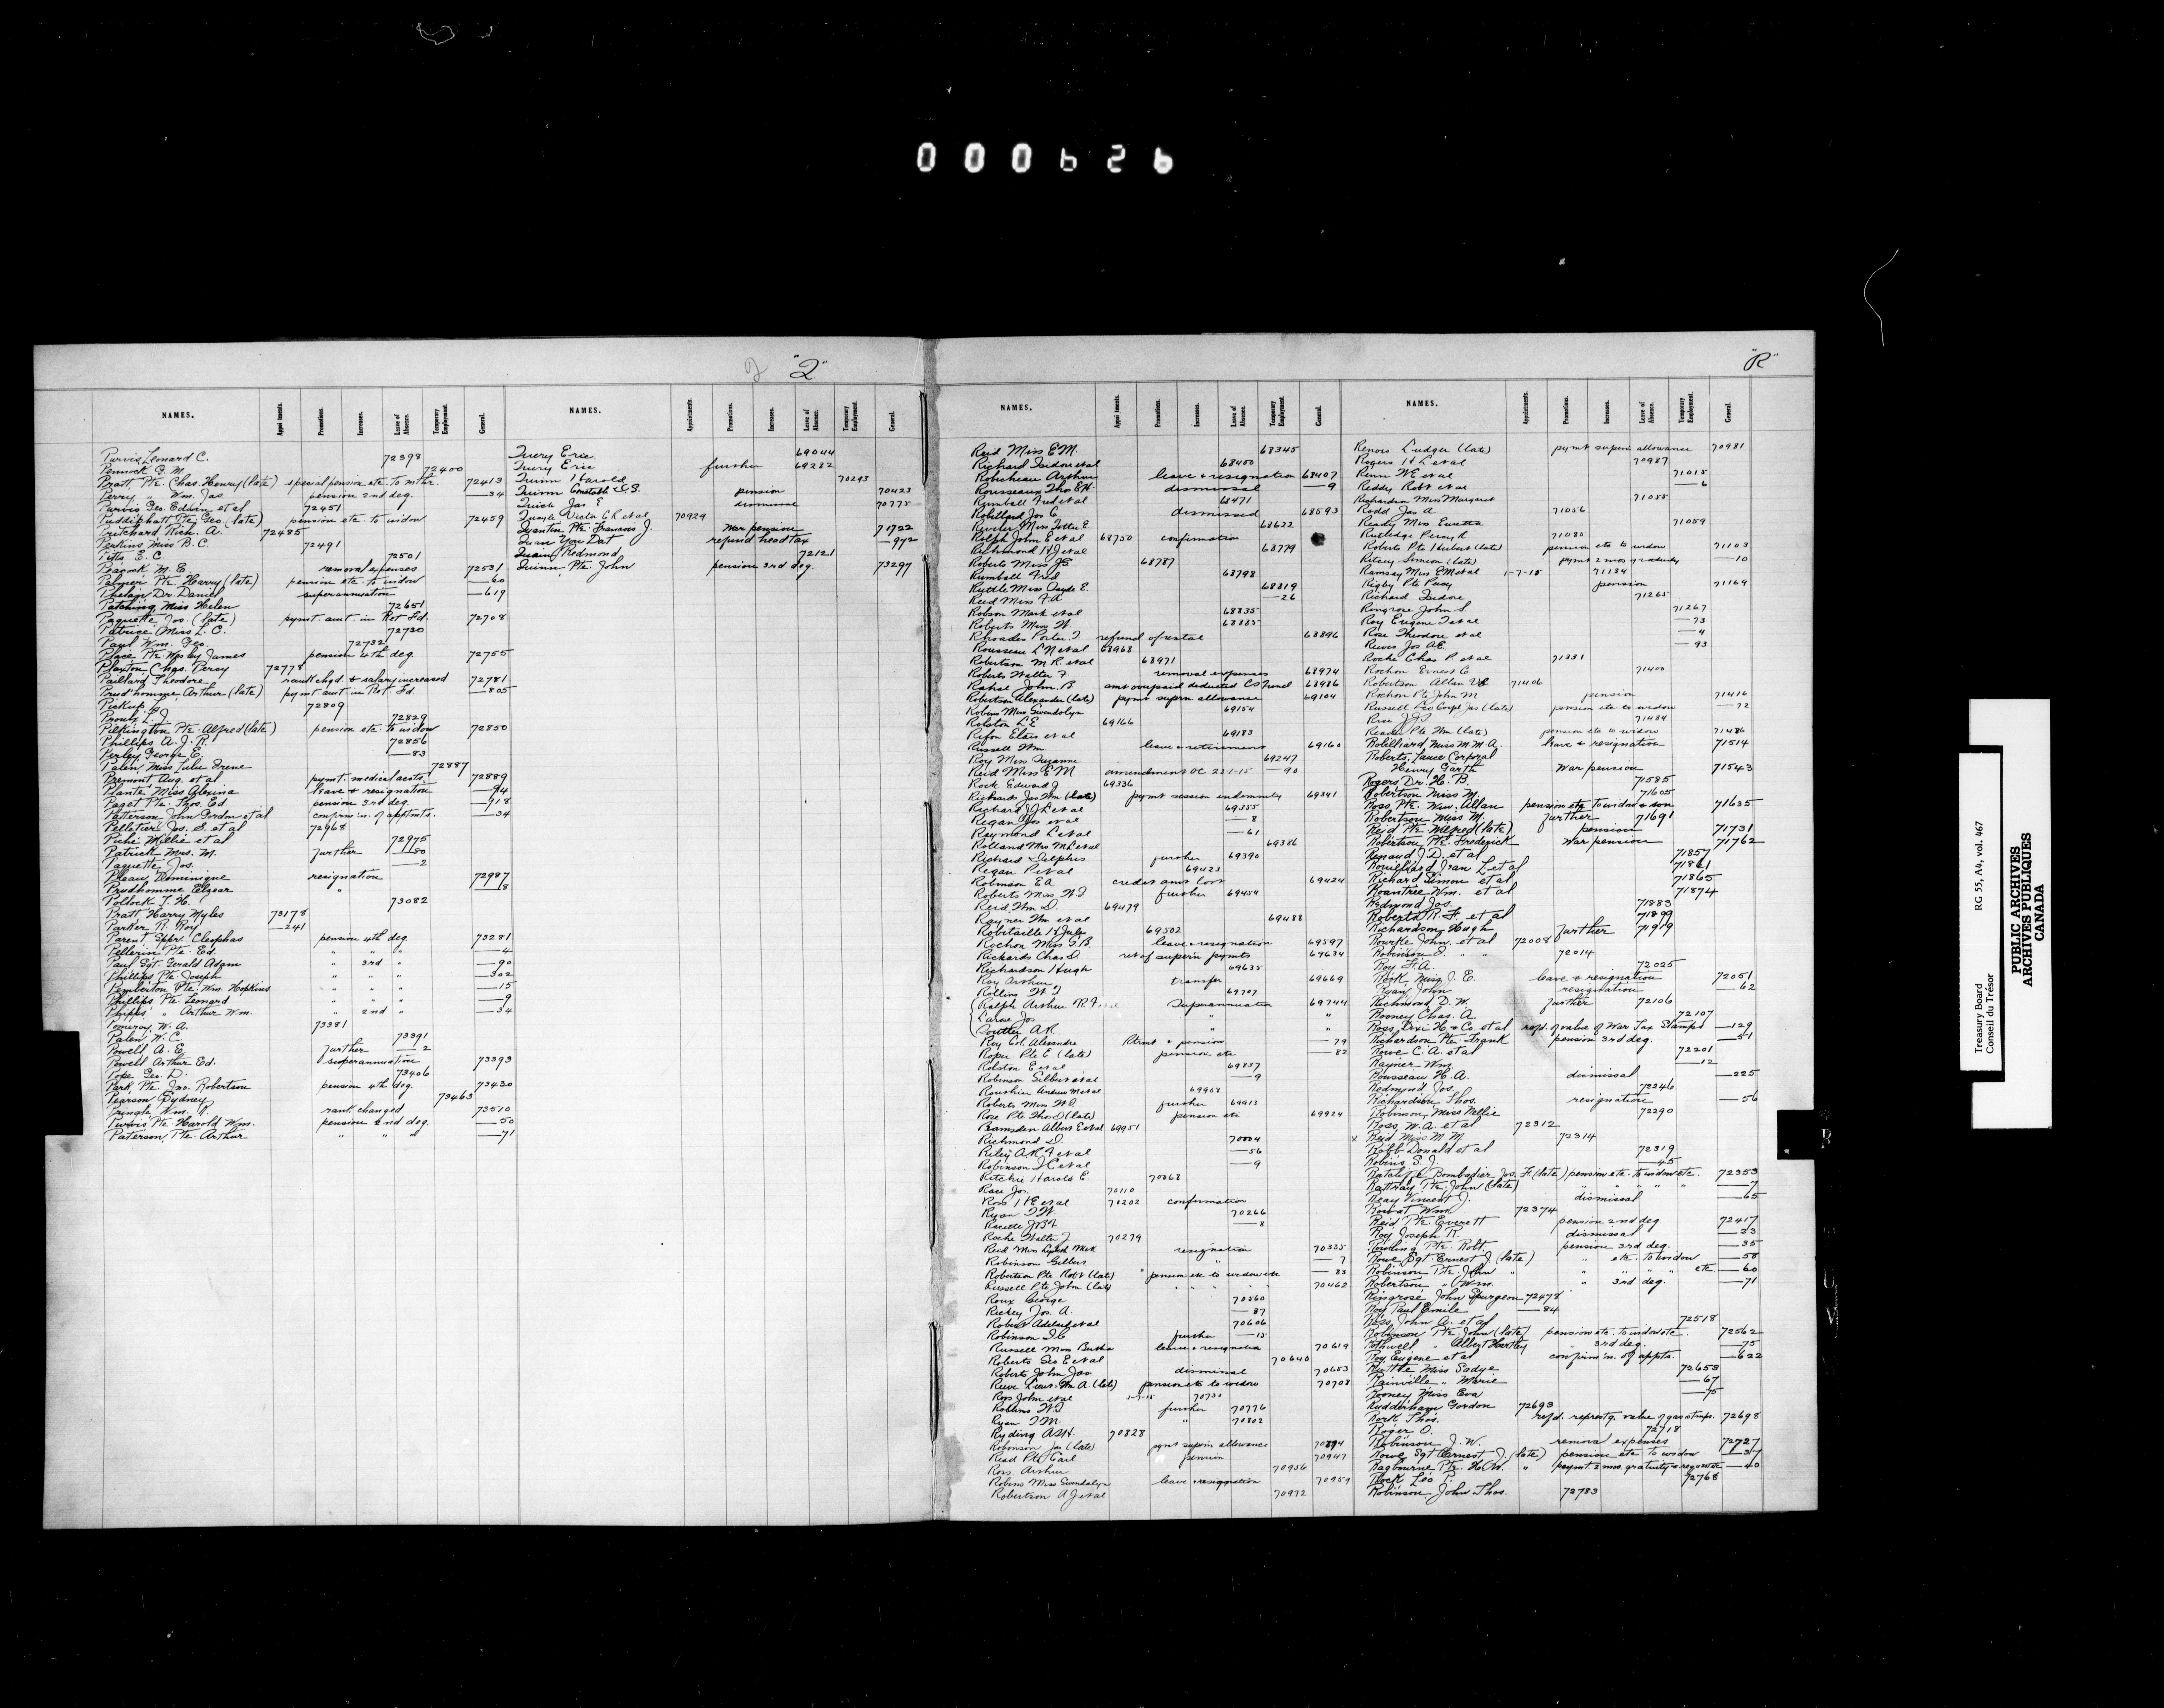 000626
"Q"
"R"
NAMES. Appointments. Promotions. Increases. Leave of Absence. Temporary Employment. General.
Purvis, Leonard C. 72398
Pennock G. M. 72400
Pratt, Pte. Chas. Henry (late) special pension etc. to mthr. 72413
Perry " Wm. Jas. pension 2nd deg. —34
Purvis Geo. Edwin et al 72451
Puddiphatt Pte. Geo. (late) pension etc. to widow 72459
Pritchard Rich. A. 72485
Perkins Miss B. C. 72491
Pitts E. C. 72501
Peacock M. E. removal expenses 72531
Palmer Pte. Harry (late) pension etc. to widow —60
Phelan, Dr. Daniel superannuation —619
Patching Miss Helen 72651
Paquette, Jos. (late) paymt. amt. in Ret. Fd. 72708
Patrice Miss L. C. 72730
Paul Wm. Geo. 72732
Place Pte. Wesley James pension 4th deg. 72755
Plaxton Chas. Percy 72778
Paillard, Theodore rank chgd. & salary increased 72781
Prud'homme, Arthur (late) paymt amt. in Ret. Fd. —805
Pickup 72809
Proulx L. J. 72829
Pilkington Pte. Alfred (late) pension etc. to widow 72850
Phillips A. J. R. 72856
Perley, George E. —83
Palen, Miss Lulu Irene 72887
Premont Aug. et al paymt. medical accts. 72889
Plante Miss Alexina leave & resignation —94
Paget Pte. Thos. Ed. pension 3rd deg. —918
Patterson John Gordon et al confirm'n. of apptmts. —34
Pelletier Jos. S. et al 72968
Piché Willie et al 72975
Patrick Mrs. M. further —80
Paquette Jos. —2
Pleau, Dominique resignation 72987
Prudhomme Elzear " —8
Pollock T. H. 73082
Pratt Harry Myles 73178
Parker R. Roy —241
Parent, Sppr. Cleophas pension 4th deg. 73281
Pellerin Pte. Ed. " " " —4
Paul Sgt. Gerald Adam " 3rd " —90
Phillips Pte. Joseph " " " —302
Pemberton Pte. Wm. Hopkins " " " —15
Phillips Pte. Leonard " " " —9
Phipps " Arthur Wm. " 2nd " —34
Pomeroy, W. A. 73381
Palen, W. C. 73391
Powell A. E. further —2
Powell Arthur Ed. superannuation 73393
Pope Geo. D. 73406
Park Pte. Jno. Robertson pension 4th deg. 73430
Pearson Sydney 73463
Pringle Wm. rank changed 73510
Purvis Pte. Harold Wm. pension 2nd deg. —50
Paterson, Pte. Arthur " " " —71
NAMES. Appointments. Promotions. Increases. Leave of Absence. Temporary Employment. General.
Query Eric 69044
Query Eric further 69282
Quinn Harold 70293
Quinn Constable pension 70423
Quick Jas E dismissal 70775
Quayle Viola et al 70929
Quantin Pte. Francois J. War pension 71722
Quan You Dat refund head tax —972
Quain, Redmond 72121
Quinn, Pte. John pension 3rd deg. 73297
NAMES. Appointments. Promotions. Increases. Leave of Absence. Temporary Employment. General.
Reid Miss E M. 68345
Richard Isidore et al 68450
Robicheau Arthur leave & resignation 68407
Rousseaux Thos E H. dismissal —9
Rumball Fred et al 68471
Robillard Jos C dismissed 68593
Reveler Miss Lottie E 68622
Rolph John E et al 68750 confirmation
Richmond H J et al 68779
Roberts Miss J E 68787
Rumball Fred 68798
Ruttle Miss Sayde E. 68819
Reid Miss F. A —26
Robson Mark et al 68835
Roberts Miss W 68885
Rhoades Porter T. refund of 68896
Rousseau L N et al 68968
Robertson M R et al 68971
Roberts Walter F. removal expenses 68974
Rahal John B amt overpaid deducted C S Fund 68986
Robertson Alexander (late) paymt supern allowance 69104
Robins Miss Gwendolyn 69154
Rolston L E 69166
Rifon Elias et al 69183
Russell Wm leave & retirement 69160
Roy Miss Suzanne 69247
Reid Miss E M amendment OC 23-1-15 —90
Rock Edward J 69336
Richards Jas Wm (late) paymt session indemnity 69341
Richard J L et al 69355
Regan Jos et al —8
Raymond L et al —61
Rolland Mrs M L et al 69386
Richard Delphis further 69390
Regan P et al 69423
Robinson E A credit amt lost 69424
Roberts Miss W. J further 69454
Reid Wm D. 69479
Rayner Wm et al 69488
Robitaille H Jules 69502
Rochon Miss G. B. leave & resignation 69597
Rickards Chas D. ret of supern paymts 69634
Richardson Hugh 69635
Roy Arthur transfer 69669
Rollins W. J 69707
Ralph Arthur R Superannuation 69744
Larose Jos " "
Southey A R " "
Roy Col. Alexandre Retmt & pension —79
Roper Pte E (late) pension etc —82
Rolston E et al 69837
Robinson Gilbert et al —9
Rourkier Andrew M et al 69908
Roberts Miss W J further 69913
Rose Pte Thos D (late) pension etc 69924
Ramsden Albert E et al 69951
Richmond D. 70004
Riley A. R. J et al —56
Robinson J C et al —9
Ritchie Harold E. 70068
Race Jos. 70110
Ross H E et al 70202 confirmation
Ryan T W. 70266
Racette J B H —8
Roche Walter J 70279
Reid Miss Lydia Mack resignation 70335
Robinson Gilbert " —7
Robertson Pte Robt (late) pension etc to widow etc —83
Russell Pte John (late) " " " 70462
Roux George 70560
Richey Jos. A. —87
Robert Adelard et al 70606
Robinson J. C further —15
Russell Miss Bertha leave & resignation 70619
Roberts Geo E et al 70640
Roberts John Jas dismissal 70653
Reeve Lieut. Wm A. (late) pension etc to widow 70708
Ross John et al 1-7-15 70730
Robbins W. J further 70776
Ryan T M. " 70802
Ryding A S H. 70828
Robinson Jas (late) pymt supern allowance 70894
Read Pte Carl pension 70947
Ross Arthur 70956
Robins Miss Gwendolyn leave & resignation 70959
Robertson A J et al 70972
NAMES. Appointments. Promotions. Increases. Leave of Absence. Temporary Employment. General.
Renois Ludger (late) pymt supern allowance 70981
Rogers H L et al 70987
Renn W E et al 71018
Reddy Robt et al —6
Richardson Miss Margaret 71055
Rodd Jas A 71056
Ready Miss Euretta 71059
Rutledge Percy R 71085
Roberts Pte Hubert (late) pension etc to widow 71103
Ritcey Simeon (late) pymt 2 mos gratuity —10
Ramsay Miss E M et al 1-7-15 71134
Rigby Pte Percy pension 71169
Richard Isidore 71265
Ringrose John S. 71267
Roy Eugene J et al —73
Rose Theodore et al —4
Reeves Jos A E —93
Roche Chas P. et al 71331
Rochon Ernest C 71400
Robertson Allan 71406
Rochon Pte John M pension 71416
Russell Lce Corpl Jas (late) pension etc to widow —72
Rice J. J. 71484
Reader Pte Wm (late) pension etc to widow 71486
Robilliard Miss M M A. leave & resignation 71514
Roberts, Lance Corporal
Henry Garth War pension 71543
Rogers Dr. H. B. 71585
Robertson Miss M. 71605
Ross, Pte. Wm. Allan pension etc to widow & son 71635
Robertson Miss M. further 71691
Reid Pte. Alfred (late) pension 71731
Robertson Pte. Frederick War pension 71762
Renaud J. D. et al 71857
Rouilliard Jean L. et al 71861
Richard Simon et al 71865
Roantree Wm. et al 71874
Redmond Jos. 71883
Roberts R. F. et al 71899
Richardson, Hugh further 71919
Rourke John. et al 72008
Robinson J. " " 72014
Roy F. A. 72025
Rork Miss J. E. leave & resignation 72051
Ryan John resignation —62
Richmond, D. W. further 72106
Rooney Chas. A. 72107
Ross, Levi H. & Co. et al refd. of value of War Tax Stamps —129
Richardson Pte. Frank pension 3rd deg. —51
Rowe C. A. et al 72201
Rayner Wm. —12
Rousseau H. A. dismissal —225
Redmond Jos. 72246
Richardson Thos. resignation —56
Robinson, Miss Nellie 72290
Ross, W. A. et al 72312
x Reid Miss M. M. 72314
Robb Donald et al 72319
Robins S. J. —45
Ratcliffe Bombadier Jos. F. (late) pension etc. to widow etc. 72353
Rattray Pte. John (late) " " " " —7
Reay Vincent J. dismissal —65
Rowat Wm. 72374
Reid Pte. Everett pension 2nd deg. 72417
Roy Joseph R. dismissal —23
Rowling Pte. Robt. pension 3rd deg. —35
Rowe Sgt. Ernest J. (late) " etc. to widow —58
Robinson Pte. John " " " " " etc —60
Robertson " Wm. " 3rd deg. —71
Ringrose John Spurgeon 72478
Roy Paul Emile —84
Ross, John A. et al 72518
Robinson Pte. John (late) pension etc. to widow etc. 72562
Rothwell " Albert Hartley " 3rd deg. —75
Roy Eugene et al confirm'n. of appts. —622
Ruttle Miss Sadye 72658
Rainville " Marie —67
Rooney Miss Eva —75
Rudderham Gordon 72693
Rork Thos. refd. represtg. value of gas stmps. 72698
Roger O. 72718
Robinson J. W. removal expenses 72727
Rowe Sgt Ernest J. (late) pension etc to widow —37
Ragbourne Pte. H. W. " paymt. 2 mos. gratuity —40
Rock Leo P. 72768
Robinson, John Thos. 72783
R
Treasury Board RG 55, A4, vol. 467
Conseil du Trésor
PUBLIC ARCHIVES
ARCHIVES PUBLIQUES
CANADA